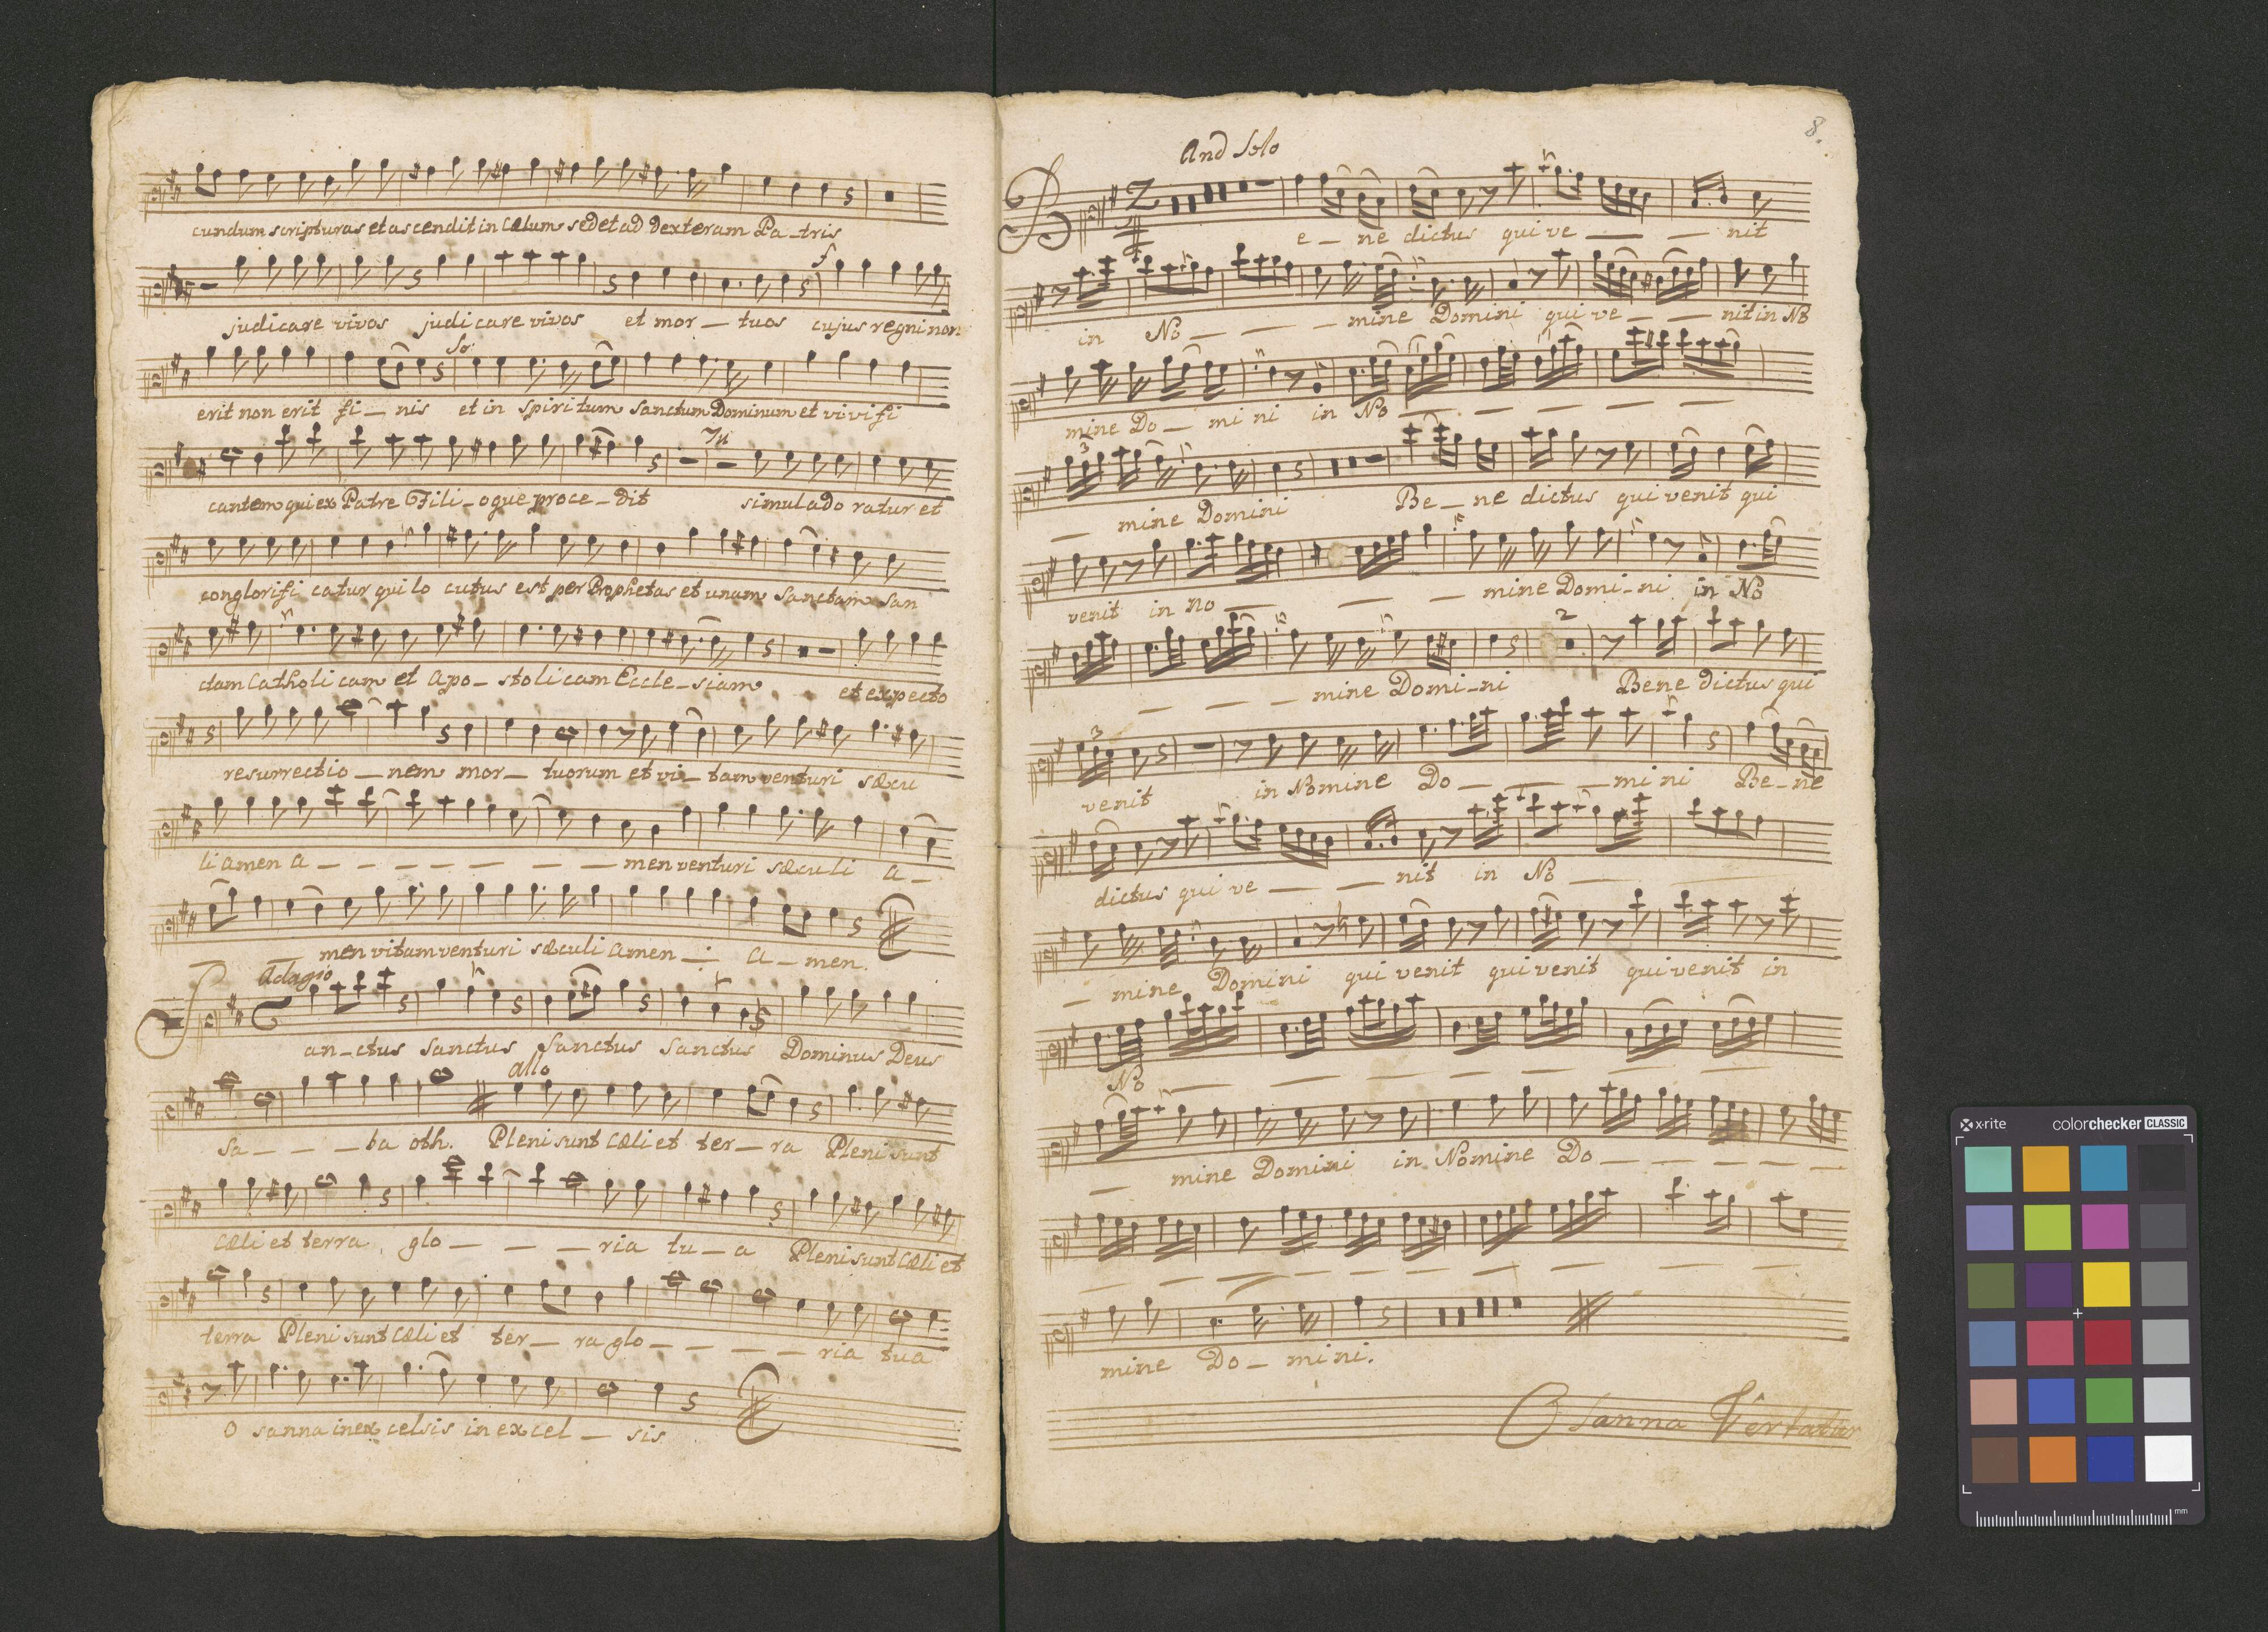 cundum scripturas et ascendit in Cælum sedet ad dexteram Pa_tris
f
judicare vivos judicare vivos et mor_tuos cujus regni non
So:
erit non erit fi_nis et in spiritum sanctum Dominum et vivifi
Tu
cantem qui ex Patre Fili_oque proce_dit simul ado ratur et
conglorifi catur qui lo cutus est per Prophetas et unam Sanctam San
ctam Catholi cam et Apo_stolicam Eccle_siam et expecto
resurrectio_nem mor_tuorum et vi_tam venturi sæcu
li amen a _ _ _ _ _ _ _ men venturi sæculi a_
_ men vitam venturi sæculi amen _ a_men.
Adagio
San_ctus Sanctus Sanctus Sanctus Dominus Deus
allo
Sa_ _ _ba oth. Pleni sunt Cæli et ter_ra Pleni sunt
Cæli et terra glo_ _ _ria tu_a Pleni sunt Cæli et
terra Pleni sunt Cæli et ter_ra glo_ _ _ _ _ria tua
O sanna in ex celsis in excel_sis
8.
And Solo
Be_ne dictus qui ve _ _ nit
in No_ _ _ _mine Domini qui ve_ _ _nit in No
mine Do_mi ni in No _ _ _ _ _ _
3
_ mine Domini Be_ne dictus qui venit qui
venit in no _ _ _ mine Domi_ni in No
2
_ _ _ mine Domi_ni Bene dictus qui
3
venit in Nomine Do_ _ _mi ni Be_ne
dictus qui ve _ _ nit in No _
_ mine Domini qui venit qui venit qui venit in
No _ _ _ _ _ _
_ mine Domini in Nomine Do_ _ _ _ _
_ _ _ _ _ _ _ _ _
mine Do_mi ni.
Osanna Vertatur
x-rite colorchecker CLASSIC
mm